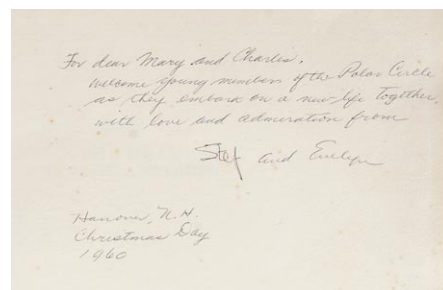 For dear Mary and Charles,
welcome young members of the Polar Circle
as they embark on a new life together
with love and admiration from
Stef and Evelyn
Hanover, N.H.
Christmas Day
1960